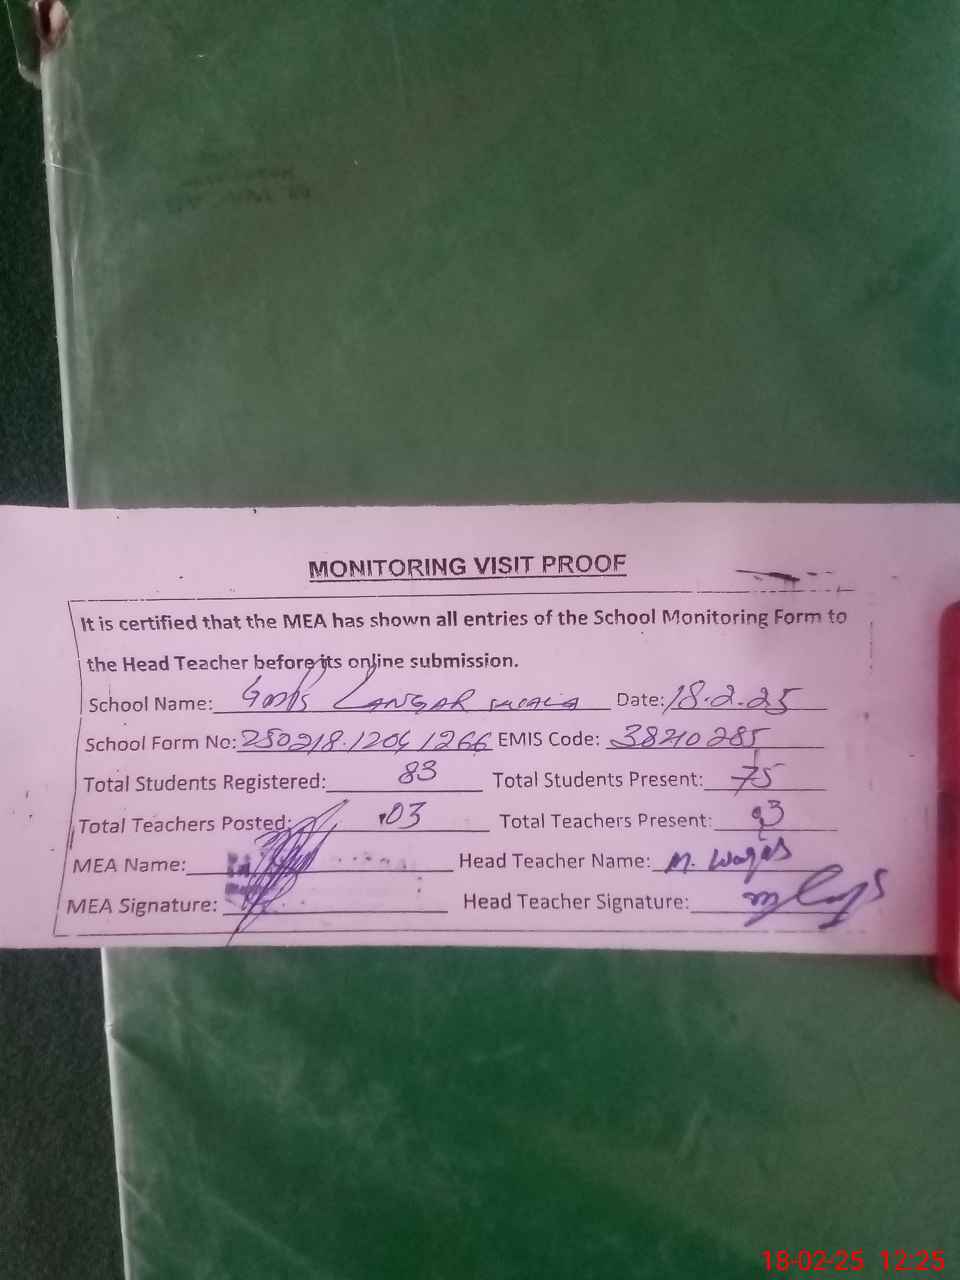 MONITORING VISIT PROOF
It is certified that the MEA has shown all entries of the School Monitoring Form to
the Head Teacher before its online submission.
School Name: LANGAR Date: 18.2.25
School Form No: EMIS Code: 38210285
Total Students Registered: 83 Total Students Present: 75
Total Teachers Posted: 03 Total Teachers Present: 03
MEA Name: Head Teacher Name: M. Waqas
MEA Signature: Head Teacher Signature:
18-02-25 12:25